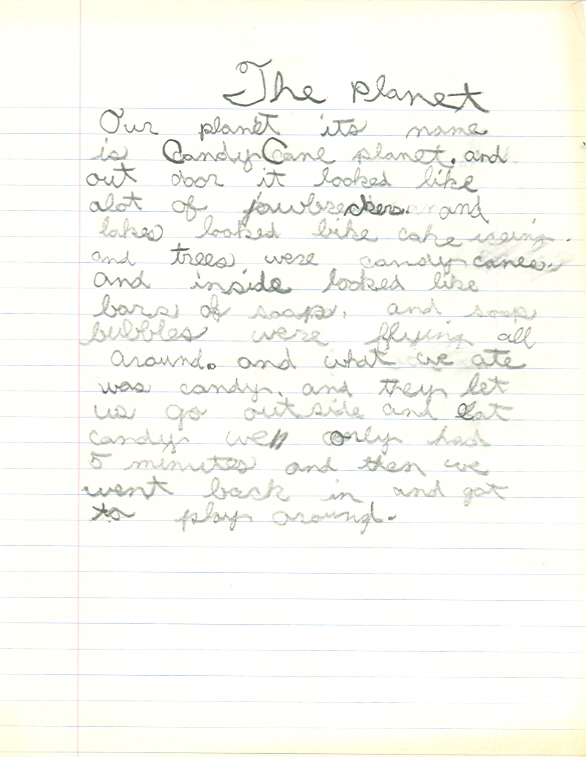 The planet
Our planet its name
is CandyCane planet. and
out door it looked like
alot of jawbreckers. and
lakes looked like cake iceing.
and trees were candy canes.
and inside looked like
bars of soap. and soap
bubbles were flying all
around. and what we ate
was candy. and they let
us go outside and eat
candy well only had
5 minutes and then we
went back in and got
to play around.